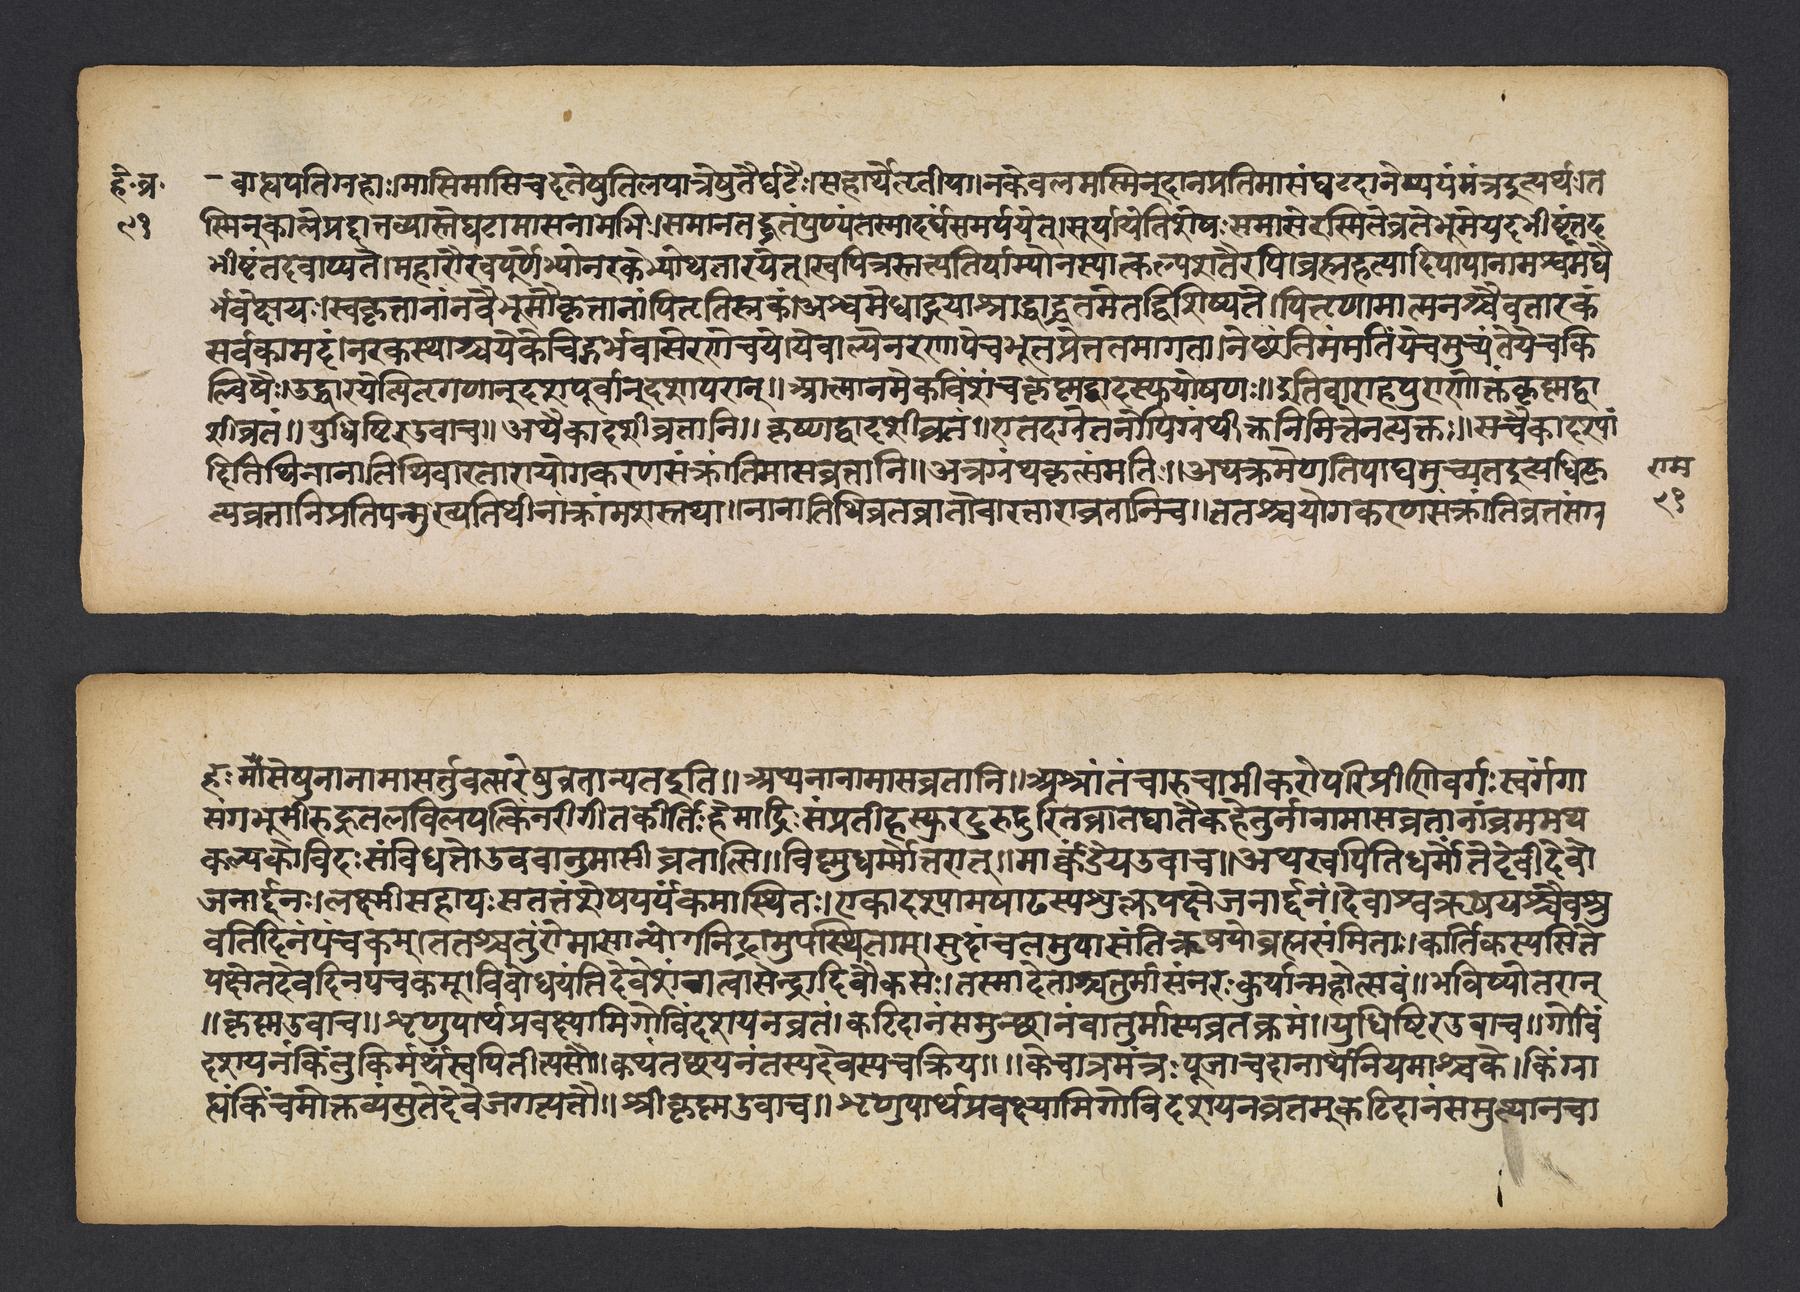 हे.व्र.
९१
वाह्यपतिग्रहाः।मासिमासिचदृतेषुतिलपात्रेषुतैर्घटैः।सहार्थेतृतीया।नकेवलमस्मिन्दानप्रतिमासंघटदानेप्ययंमंत्रइत्यर्थः।त
स्मिन्कालेप्रदातव्यास्तेघटामासनामभिः।समानतद्व्रतंपुण्यंतस्मादर्घंसमर्पयेत्।सूर्यायेतिशेषः।समासेऽस्मितेव्रतेभूमेयदभीष्टंतद
भीष्टंतदवाप्यते।महारौरवपूर्णेभ्योनरकेभ्योथतारयेत्।स्वपितॄन्नस्त्यतिर्याम्योनस्यात्कल्पशतैरपि।ब्रह्महत्यादिपापानामश्वमेधै
र्भवेदाय।स्वकृत्तानांनवैभूमौकृत्तानांपितृतिस्त्रकं।अश्वमेधाद्गयाश्राद्धाद्व्रतमेतद्विशिष्यते।पितॄणामात्मनश्चैवतारकं
सर्वकामदं।नरकस्थाश्चयेकेचिद्गर्भवासेरणेचये।येवाल्येनरणापेचभूतप्रेत्ततमागता।नेष्ठंतिमंमतिंयेचमुच्यंतेयेचकि
ल्विषैः।उद्धारयेत्पितृगणान्दशपूर्वान्दशापरान्॥आत्मानमेकविंशंचकृष्मद्वादश्युपोषणः॥इतिवाराहपुराणोक्तंकृष्मद्वा
शीव्रतं॥युधिष्टिरउवाच॥अथैकादशीव्रतानि॥कृष्णद्वादशीव्रतं॥एतदग्रेतनोपिग्रंथीक्तनिमित्तेनत्यक्तः॥सचैकादश्यां
दितिथिनानातिथिवारतारायोगकरणसंक्रांतिमासव्रतानि॥अत्रग्रंथकृत्संमतिः॥अथक्रमेणतिपाद्यमुच्यतइत्यधिकृ
त्यव्रतानिप्रतिपन्मुख्यतिथीनांक्रमशस्तथा॥नानातिथिव्रतव्रातोवारताराव्रतानिच॥ततश्चयोगकरणसंक्रांतिव्रतसंग्र
राम
९१
हःमासेषुनानामासर्तुवत्सरेषुव्रतान्यतइति॥अथनानामासव्रतानि॥अश्रांतंचारुचामीकरोपरिश्रीणिवर्गःस्वर्गगा
संगभूमीरुहतलविलपत्किंनरीगीतकीर्तिः।हेमाद्रिःसंप्रतीहस्फुरदुरुदुरितव्रातघातैकहेतुर्नानामासव्रतानांव्रममथ
कल्पकोविदःसंविधत्ते।उववानुमासीव्रतात्सि॥विष्मुधर्म्मोत्तरात्॥मार्कंडेयउवाच॥अथस्वपितिधर्मातेदेवीदेवो
जनार्द्दनः।लक्ष्मीसहायःसततंशेषपर्यंकमास्थितः।एकादश्यामषाढस्पशुक्लपक्षेजनार्द्दनं।देवाश्चऋषयश्चैवस्तु
वतिदिनंपंचकम्।ततश्चतुरोमासान्योगनिद्रामुपस्थिताम्।सुहांचलमुपासंतिऋषयोव्रह्मसंमिताः।कार्तिकस्यसिते
पक्षेतदेवदिनपंचकम्।विवोधयंतिदेवेशंगत्वासेन्द्रादिवौकसः।तस्मादेताश्चतुर्मासंनरःकुर्यान्महोत्सवं॥भविष्योतरात्
॥कृष्मउवाच॥शृणुपार्थप्रवक्ष्यामिगोविंदशयनव्रतं।कटिदानंसमुच्छानंचातुर्मास्यव्रतक्रमं॥युधिष्टिरउवाच॥गोविं
दशयनंकिंतुकिर्मर्थंस्वपितीत्यसौ॥कथंतच्छयनंतस्यदेवस्यचक्रिय॥॥केचात्रमंत्रःपूजाचदानार्थेनियमाश्चके।किंग्रा
ह्यंकिंचमोक्तव्यंसुतेदेवेजगत्पतौ॥श्रीकृष्मउवाच॥शृणुपार्थप्रवक्ष्यामिगोविदशयनव्रतम्कटिदानंसमुत्थानचा